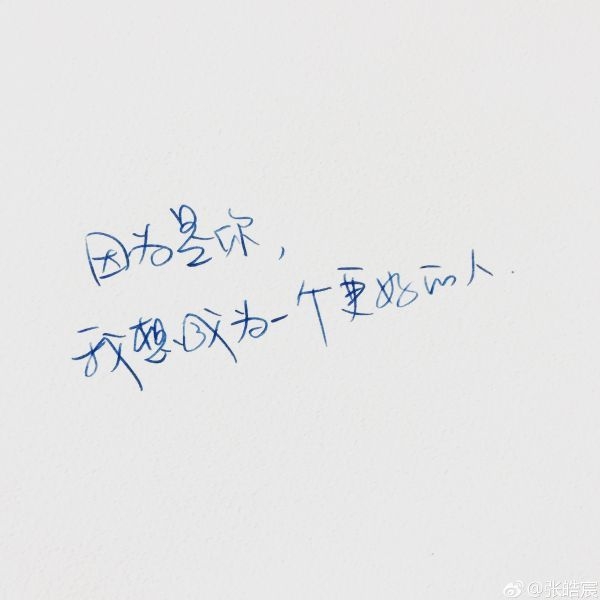 因为是你，
我想成为一个更好的人.
@张皓宸